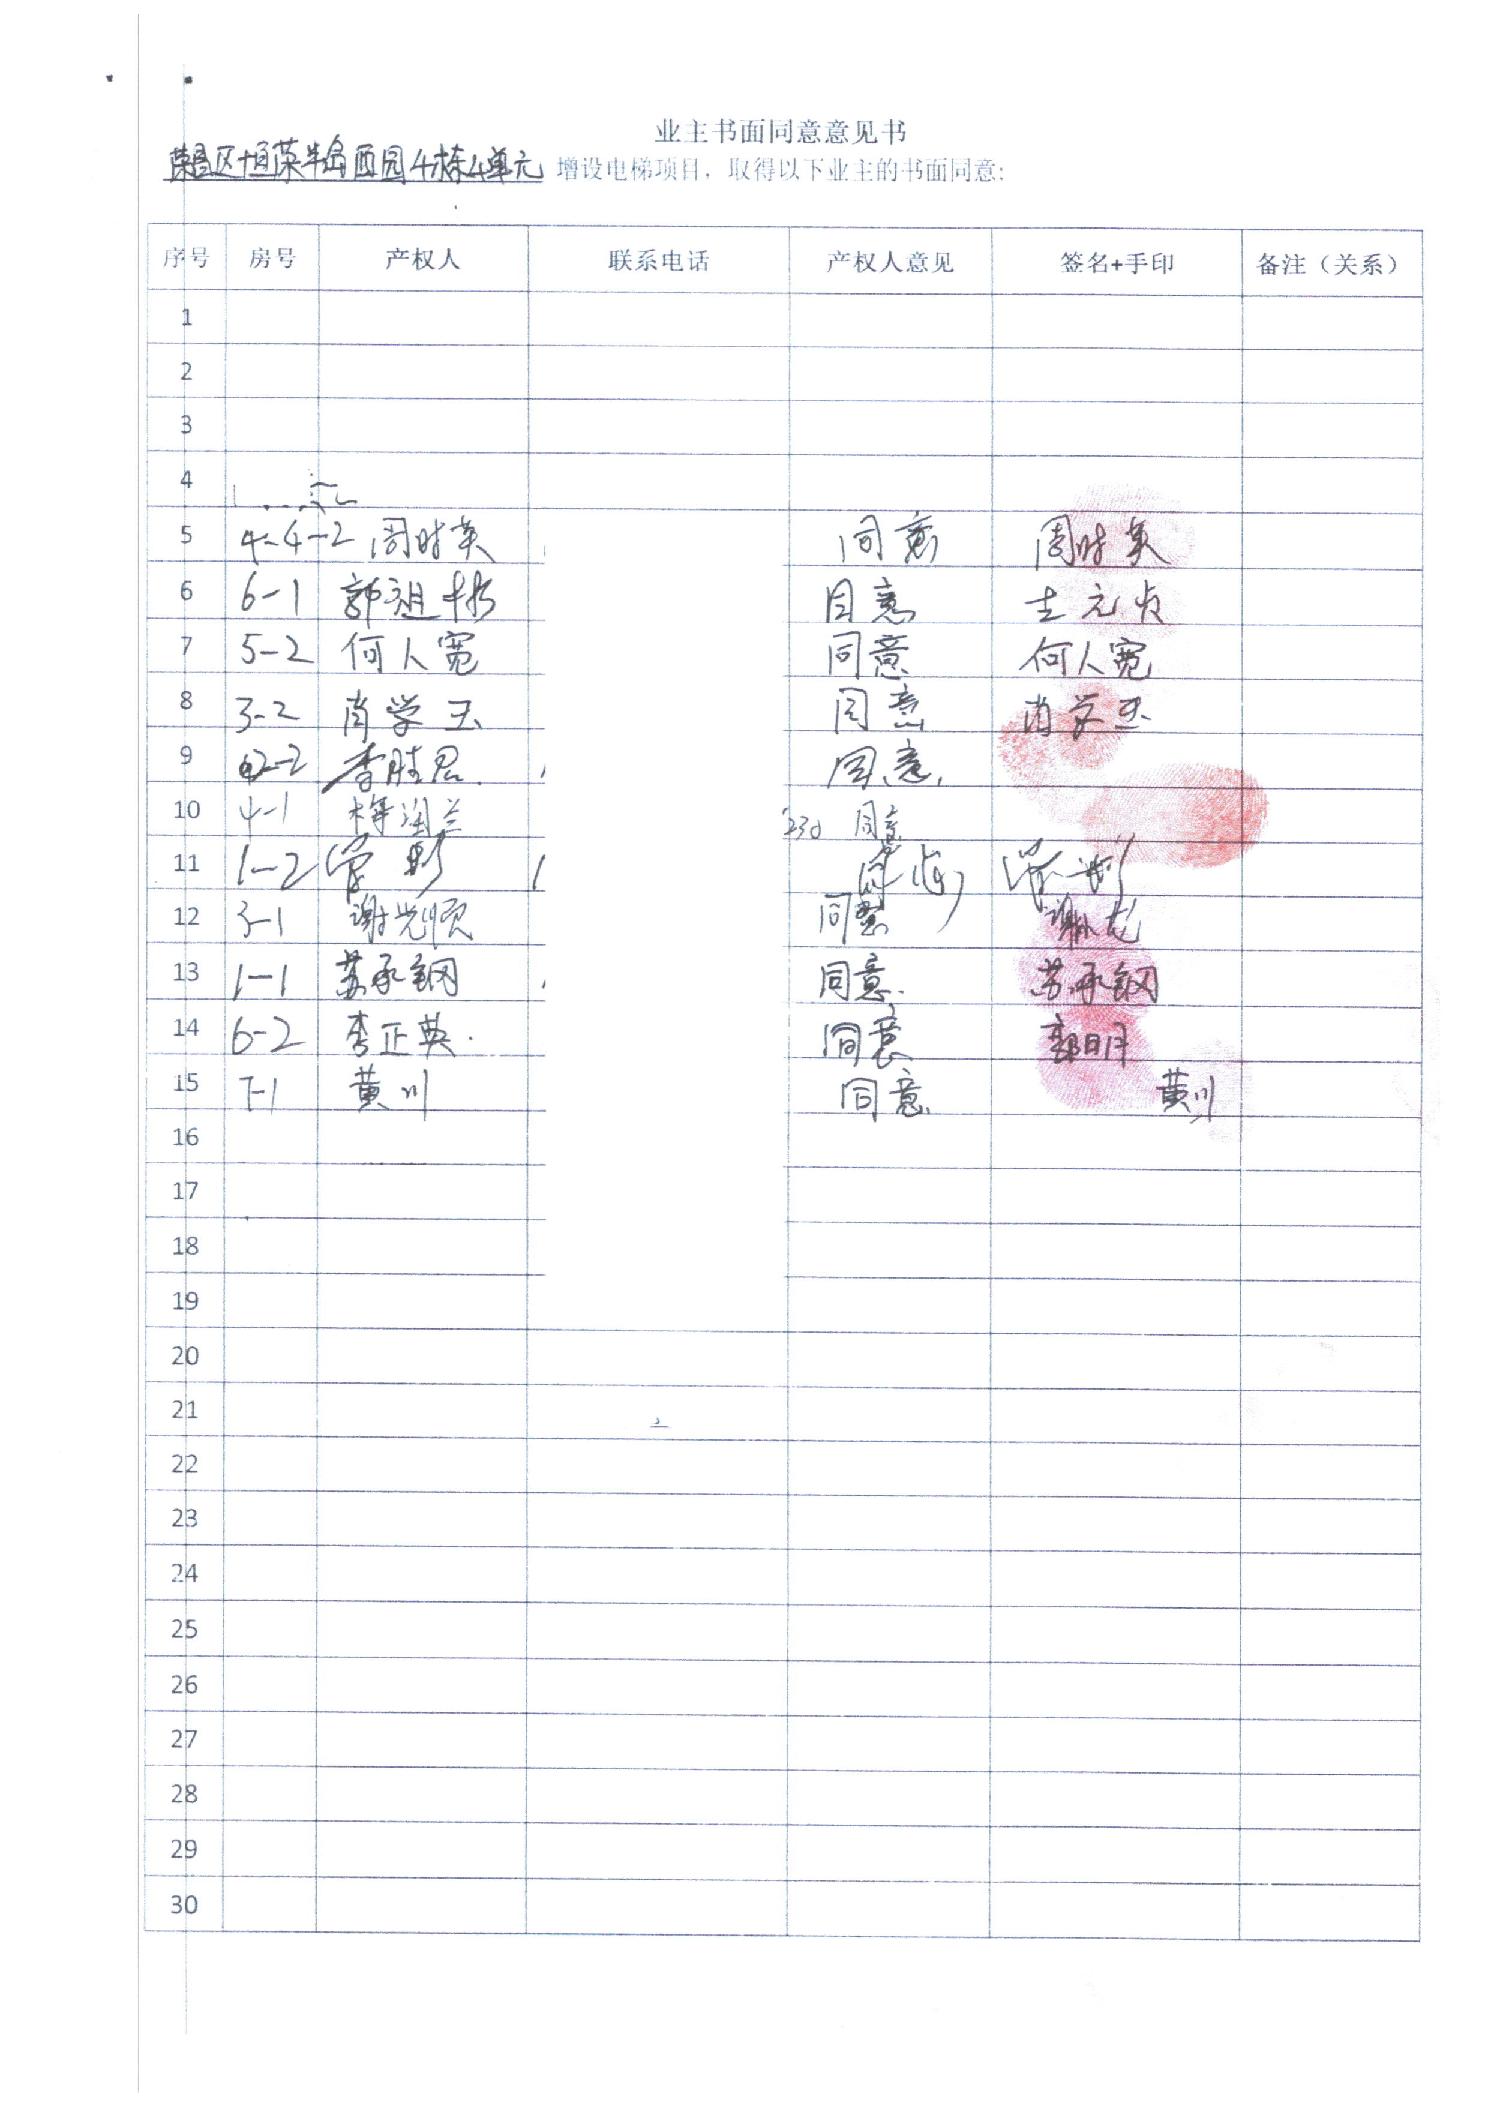 业主书面同意意见书
荣昌区恒荣半岛西园4栋4单元 增设电梯项目，取得以下业主的书面同意：
序号 房号 产权人 联系电话 产权人意见 签名+手印 备注（关系）
1
2
3
4
5 4-4-2 周时英 同意 周时英
6 6-1 郭祖彬 同意
7 5-2 何人宽 同意 何人宽
8 3-2 肖学玉 同意 肖学玉
9 2-2 李胜君 同意
10 4-1 同意
11 1-2 同意
12 3-1 谢光顺 同意
13 1-1 苏承钢 同意 苏承钢
14 6-2 李正英 同意 郭明月
15 7-1 黄川 同意 黄川
16
17
18
19
20
21
22
23
24
25
26
27
28
29
30